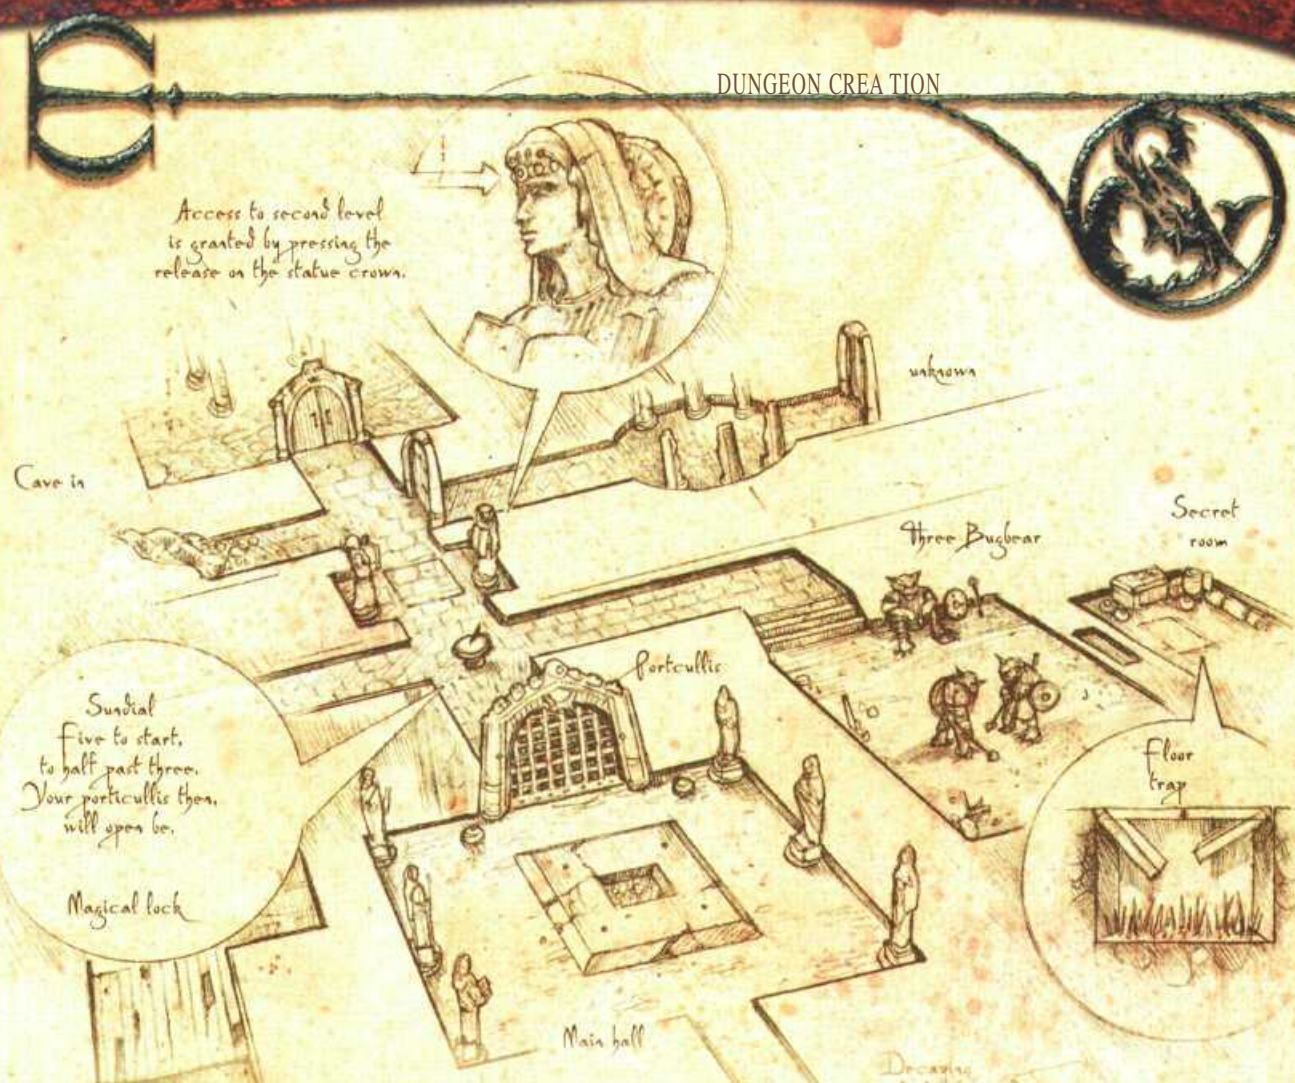 DUNGEON CREA TION
Access to second level
is granted by pressing the
release on the statue crown.
unknown
Cave in
Three Bugbear
Secret
room
Portcullis
Sundial
Five to start,
to half past three.
Your porticullis then,
will open be.
Magical lock
Floor
trap
Main hall
Decaying